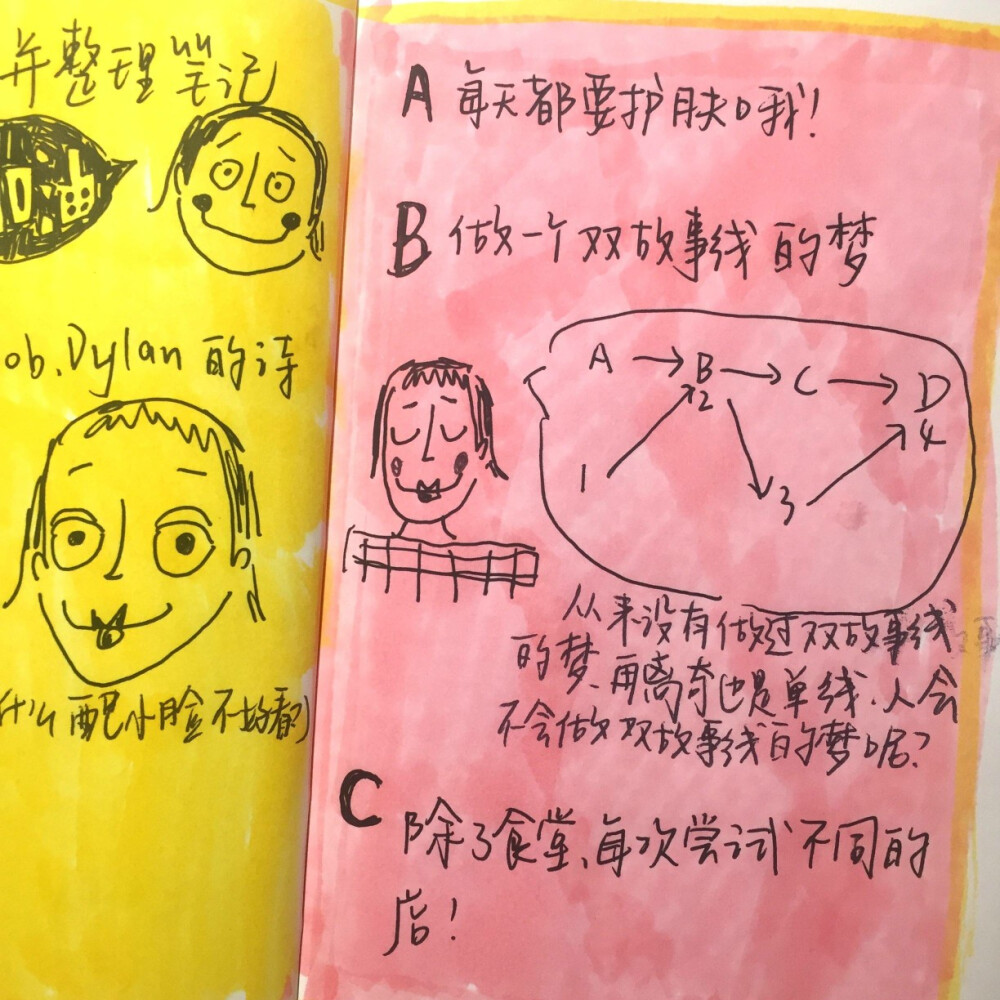 并整理笔记
ob.Dylan 的诗
什么配小脸不好看?)
A 每天都要护肤哦!
B 做一个双故事线的梦
A → B → C → D
2
4
1
3
从来没有做过双故事线
的梦、再离奇也是单线、人会
不会做双故事线的梦呢?
C 除了食堂、每次尝试不同的
店!